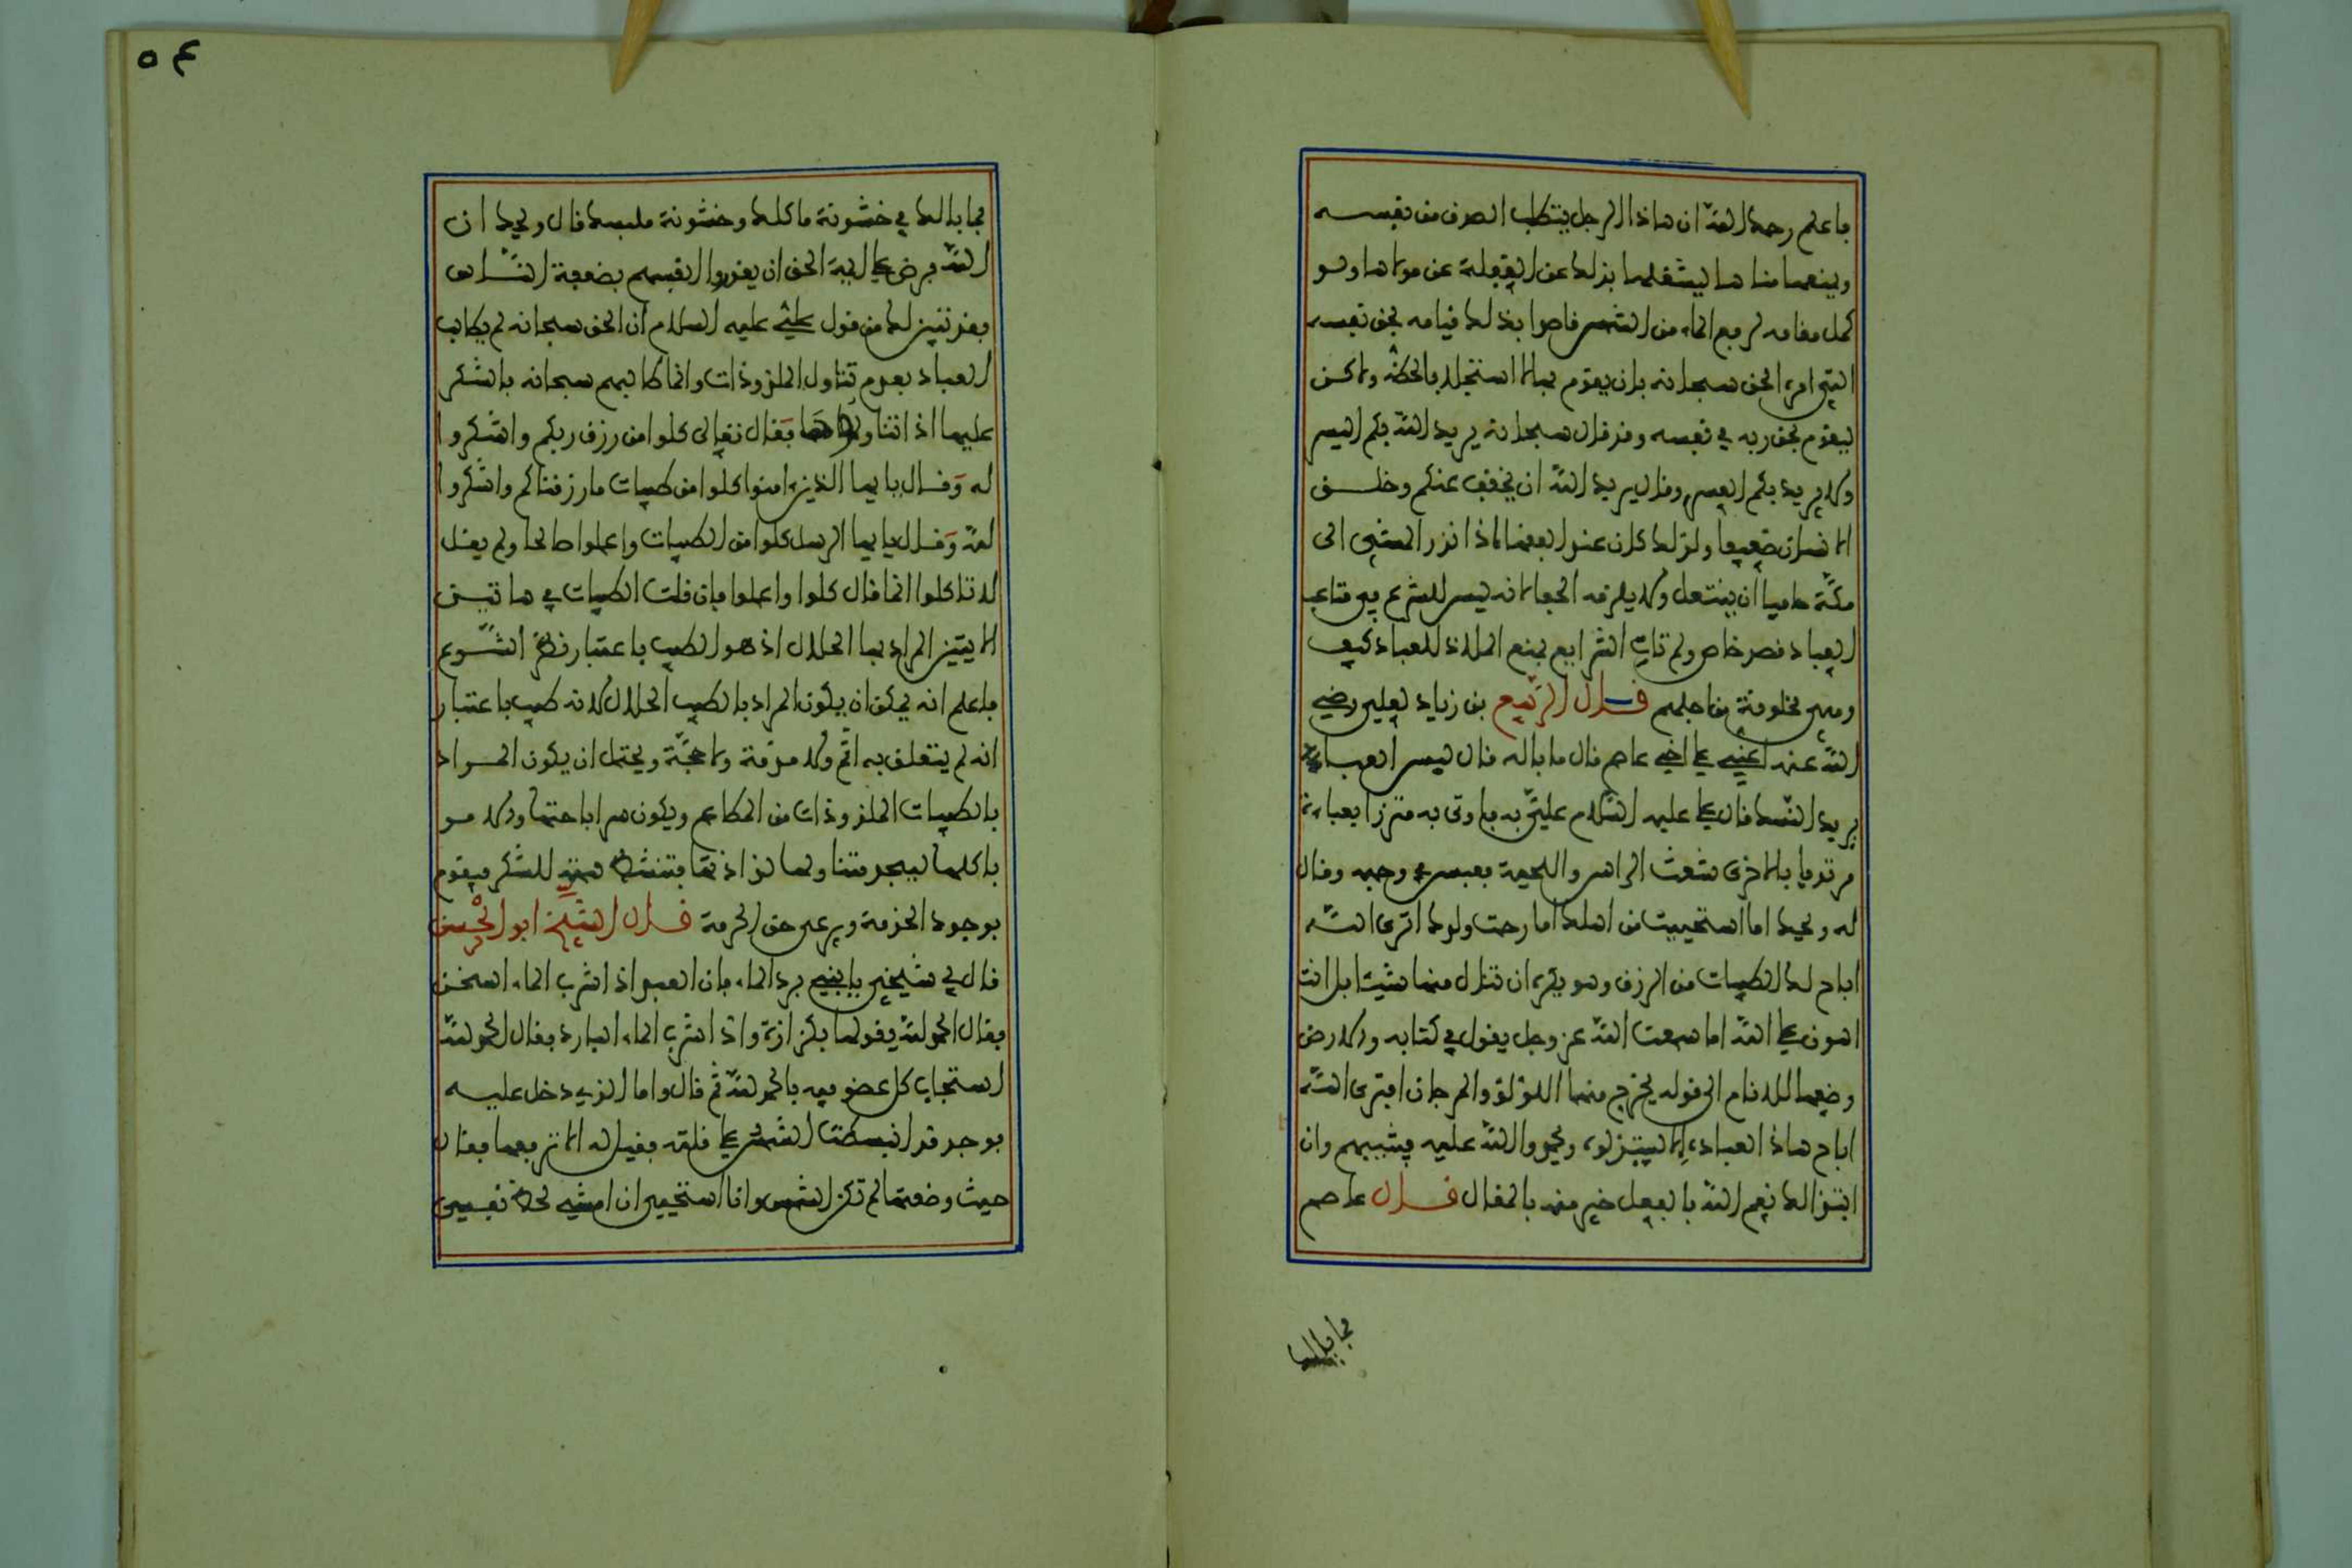 فاعلم رحمك الله ان هاذا الرجل يتطلب الصدق من نفسه
ويمنعها مناها ليشغلها بذلك عن الغفلة عن مولاها ولو
كمل مقامه لرفع الماء من الشمس قاصدا بذلك قيامه بحق نفسه
التي امره الحق سبحانه بان يقوم بها لا استجلابا لحظه ولاكن
ليقوم بحق ربه في نفسه وقد قال سبحانه يريد الله بكم اليسر
ولا يريد بكم العسر وقال يريد الله ان يخفف عنكم وخلق
الانسان ضعيفا ولذلك كان عند الفقهاء اذا نذر المشي الى
مكة حافيا ان ينتعل ولا يلزمه الحفا لانه ليس للشرع في متاعب
العباد قصد خاص ولم تات الشرايع بمنع الملاذ للعباد كيف
وهي مخلوقة من اجلهم قال الربيع بن زياد لعلي رضي
الله عنه اعني على اخي عاصم قال ما باله قال لبس العباية
يريد النسك فقال على عليه السلام علي به فاوتى به متزرا بعباءة
مرتديا بالاخرى شعث الراس واللحية فعبس وجهه وقال
له ويحك اما استحييت من اهلك اما رحمت ولدك اترى الله
اباح لك الطيبات من الرزق وهو يكره ان تنال منها شيئا بل انت
اهون على الله اما سمعت الله عز وجل يقول في كتابه والارض
وضعها للانام الى قوله يخرج منهما اللؤلؤ والمرجان افترى الله
اباح هاذا لعباده الا ليبتذلوه ويحمدوا الله عليه فيثيبهم وان
ابتذالك نعم الله بالفعل خير منه بالمقال قال عاصم
فما بالك
٥٤
فما بالك في خشونة ماكلك وخشونة ملبسك قال ويحك ان
الله فرض على ايمة الحق ان يقدروا انفسهم بضعفة الناس
فقد تبين لك من قول علي عليه السلام ان الحق سبحانه لم يطالب
العباد بعدم تناول الملذوذات وانما طالبهم سبحانه بالشكر
عليها اذا تناولوها فقال تعالى كلوا من رزق ربكم واشكروا
له وقال يايها الذين ءامنوا كلوا من طيبات ما رزقناكم واشكروا
لله وقال يايها الرسل كلوا من الطيبات واعملوا صالحا ولم يقل
لا تاكلوا انما قال كلوا واعملوا فان قلت الطيبات في هاتين
الايتين المراد بها الحلال اذ هو الطيب باعتبار نظر الشرع
فاعلم انه يمكن ان يكون المراد بالطيب الحلال لانه طيب باعتبار
انه لم يتعلق به اثم ولا مذمة ولا حجبة ويحتمل ان يكون المراد
بالطيبات الملذوذات من المطاعم ويكون سر اباحتها والامر
باكلها ليجد متناولها لذاذتها فتنشط همته للشكر فيقوم
بوجود الخدمة ويرعى حق الحرمة قال الشيخ ابو الحسن
قال لي شيخي يابني برد الماء فان العبد اذا شرب الماء السخن
فقال الحمد لله يقولها بكزازة واذا شرب الماء البارد فقال الحمد لله
استجاب كل عضو فيه بالحمد لله ثم قال واما الذي دخل عليه
فوجد قد انبسطت الشمس على قلته فقيل له الا ترفعها فقال
حيث وضعتها لم تكن الشمس وانا استحيى ان امشي لحظ نفسي